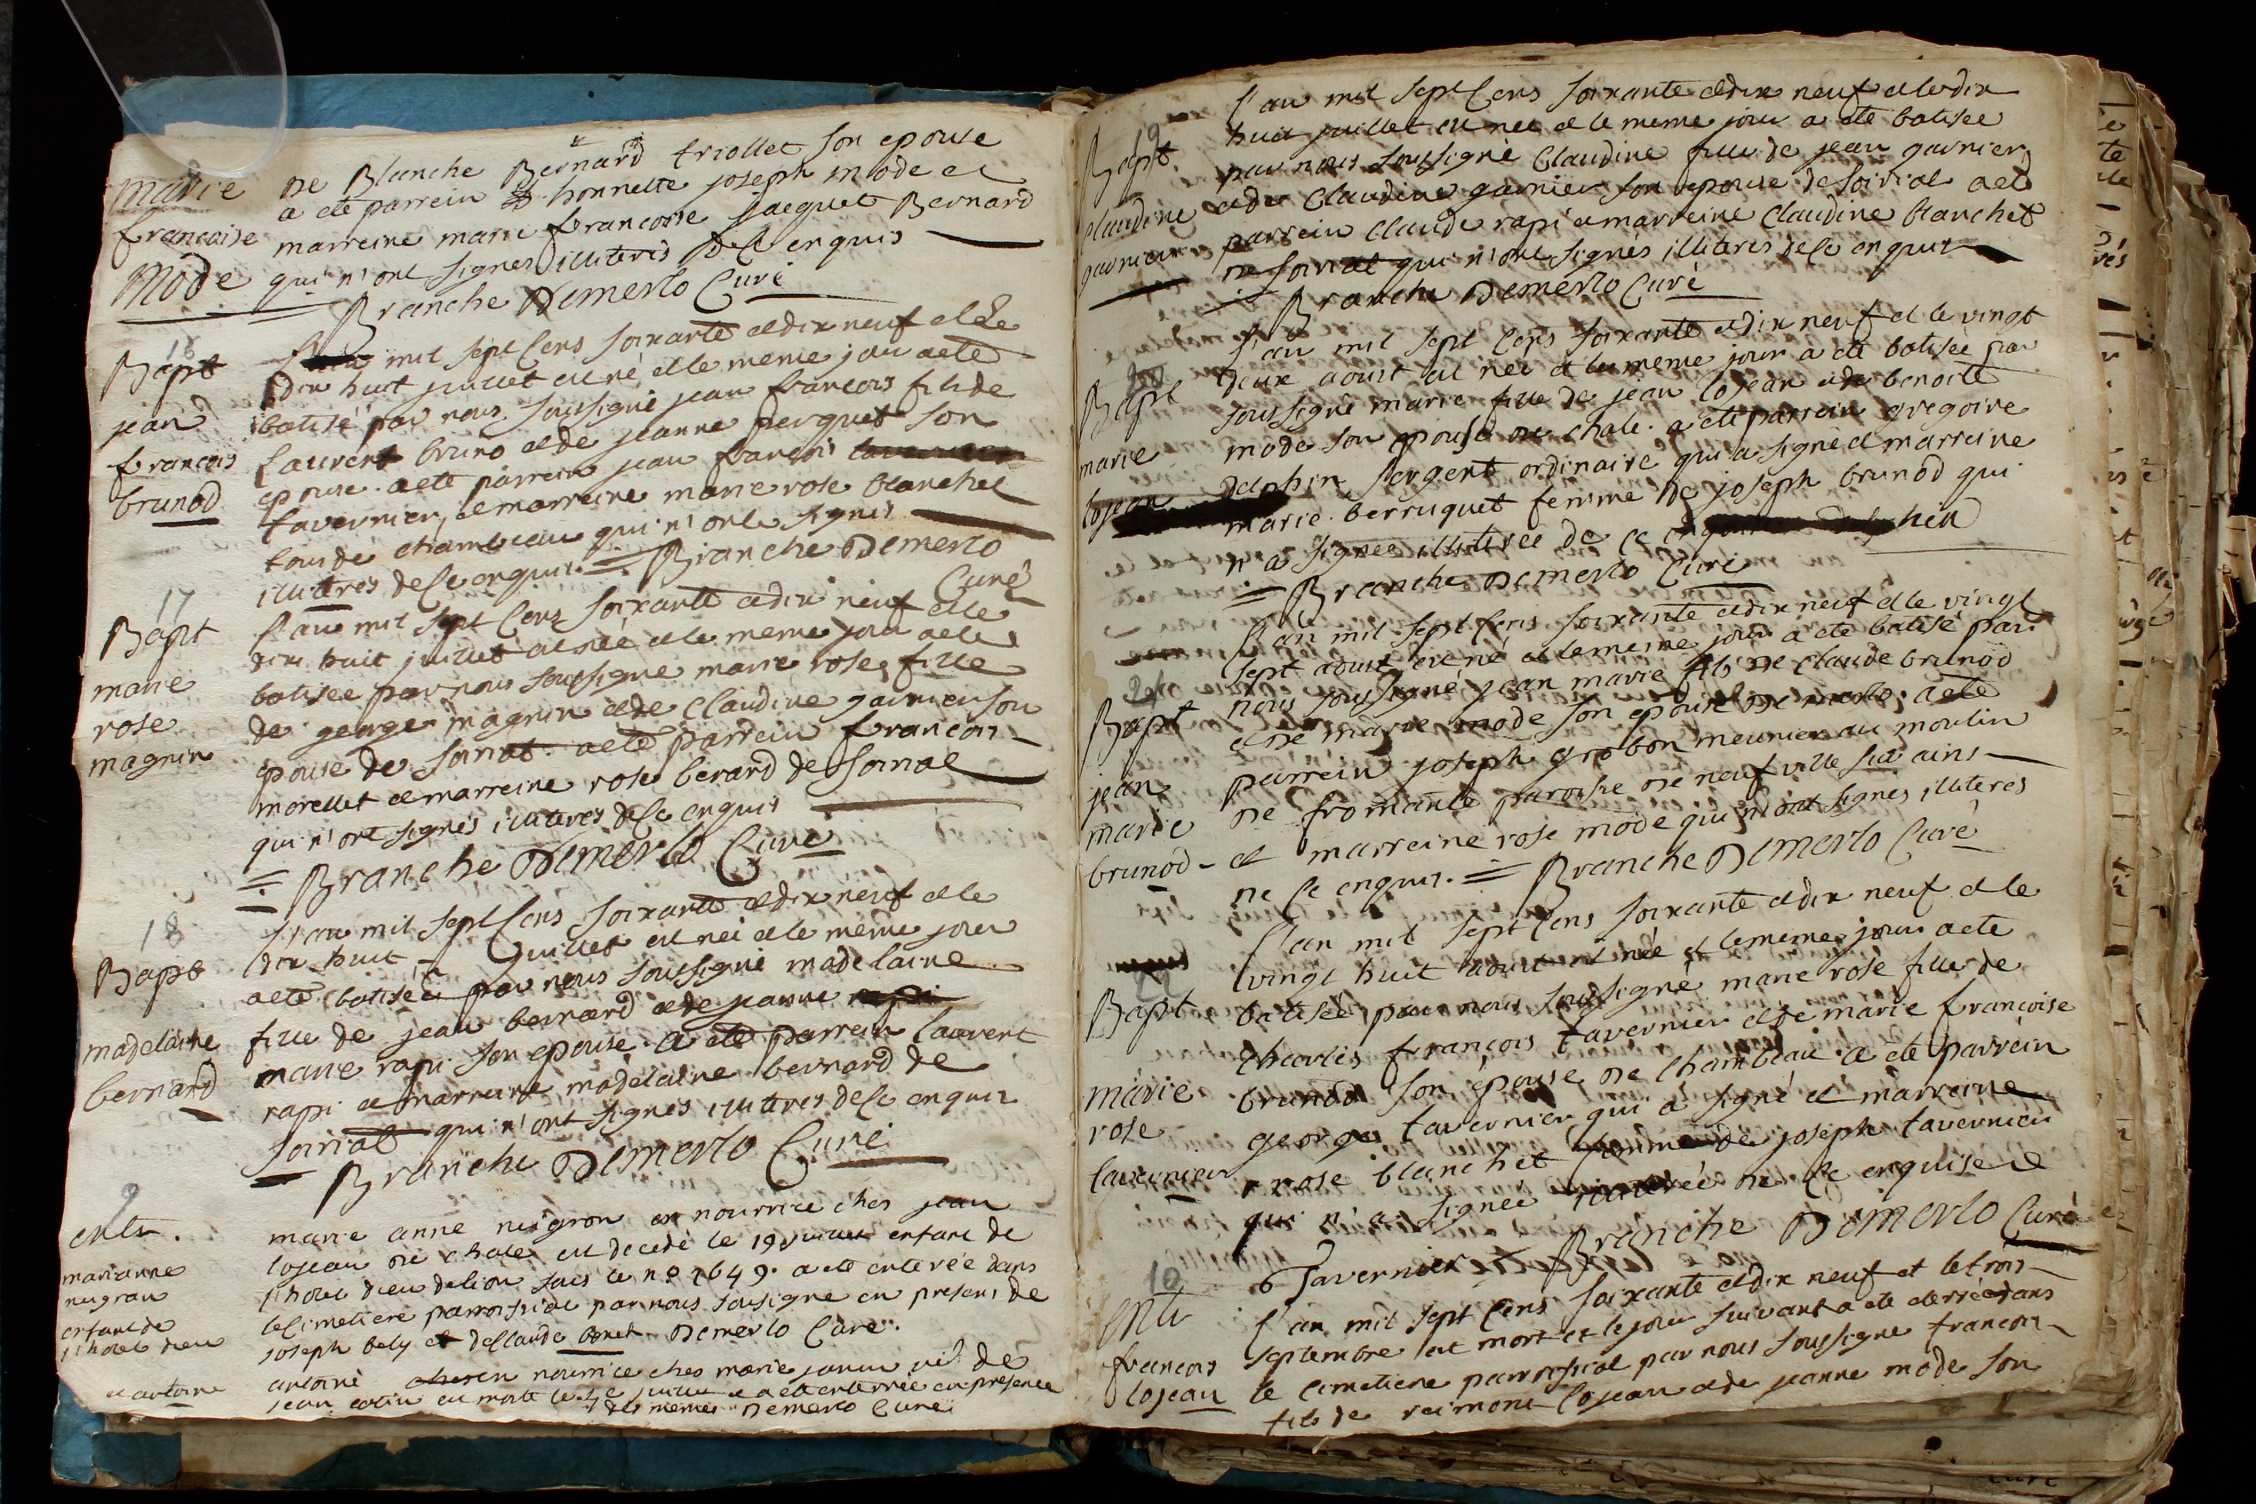 marie
francoise
Mode
De Blanche Bernard triollet son epouse
a ete parrein honnette joseph mode et
marreine marie francoise jacquet Bernard
qui n'ont signés illiterés de ce enquis
Branche Demerlo Curé
16
Bapt
jean
francois
brunod
mil sept cens soixante et dix neuf et le
dix huit juillet est né et le meme jour a ete
batisé par nous soussigné jean francois fils de
laurent bruno et de jeanne perquet son
epouse. a ete parrein jean francois
tavernier, et marreine marie rose blanchet
tous de chambeau qui n'ont signés
illiteres de ce enquis. Branche Demerlo
Curé
17
Bapt
marie
rose
magnin
l'an mil sept cens soixante et dix neuf et le
dix huit juillet est née et le meme jour a ete
batisée par nous soussigné marie rose fille
de george magnin et de Claudine garnier son
epouse de soiriat a ete parrein francois
morellet et marreine rose berard de soiriat
qui n'ont signés illiteres de ce enquis
Branche Demerlo Curé
18
Bapt
madelaine
bernard
l'an mil sept cens soixante et dix neuf et le
dix huit juillet est née et le meme jour
a ete batisée par nous soussigné madelaine
fille de jean bernard et de jeanne rapi
marie rapi son epouse. a ete parrein laurent
rapi et marreine madelaine bernard de
soiriat qui n'ont signés illiteres de ce enquis
Branche Demerlo Curé
9
entr.
marianne
neigron
enfant de
l'hotel dieu
et antoine
marie anne neigron en nourrice ches jean
lojean de chale est decedé le 19 juillet enfant de
l'hotel dieu de lion sous le no 1649. a ete enterée dans
le cimetiere parroissial par nous soussigné en presens de
joseph bely et de claude Demerlo Curé.
antoine en nourrice ches marie
jean est morte le juillet et a ete enterrée en presence
des memes Demerlo Curé
19
Bapt
claudine
garnier
l'an mil sept cens soixante et dix neuf et le dix
huit juillet est née et le meme jour a ete batisée
par nous soussigné Claudine fille de jean garnier
et de Claudine garnier son epouse de soiriat a ete
parrein claude rapi et marreine Claudine blanchet
de soiriat qui n'ont signés illiteres de ce enquis
Branche Demerlo Curé
20
Bapt
marie
lojean
l'an mil sept cens soixante et dix neuf et le vingt
deux aoust est née et le meme jour a ete batisée par
soussigné marie fille de jean lojean et de benoite
mode son epouse de chale. a ete parrein gregoire
dephin sergent ordinaire qui a signé et marreine
marie berruquet femme de joseph brunod qui
n'a signée illiterée de ce
Branche Demerlo Curé
21
Bapt
jean
marie
brunod
l'an mil sept cens soixante et dix neuf et le vingt
sept aoust est né et le meme jour a ete batisé par
nous soussigné jean marie fils de claude brunod
et de marie mode son epouse de merlo. a ete
parrein joseph grobon meunier au moulin
de fromante paroisse de neufville sur ains
et marreine rose mode qui n'ont signés illiteres
de ce enquis. Branche Demerlo Curé
22
Bapt
marie
rose
tavernier
l'an mil sept cens soixante et dix neuf et le
vingt huit aoust est née et le meme jour a ete
batisée par nous soussigné marie rose fille de
charles francois tavernier et de marie francoise
brunod son epouse de chambeau. a ete parrein
george tavernier qui a signé et marreine
rose blanchet femme de joseph tavernier
qui n'a signée illiterée de ce enquise
G Tavernier Branche Demerlo Curé
10
entr
francois
lojean
l'an mil sept cens soixante et dix neuf et le trois
septembre est mort et le jour suivant a ete eterré dans
le cimetiere parroissial par nous soussigné francois
fils de reimond lojean et de jeanne mode son